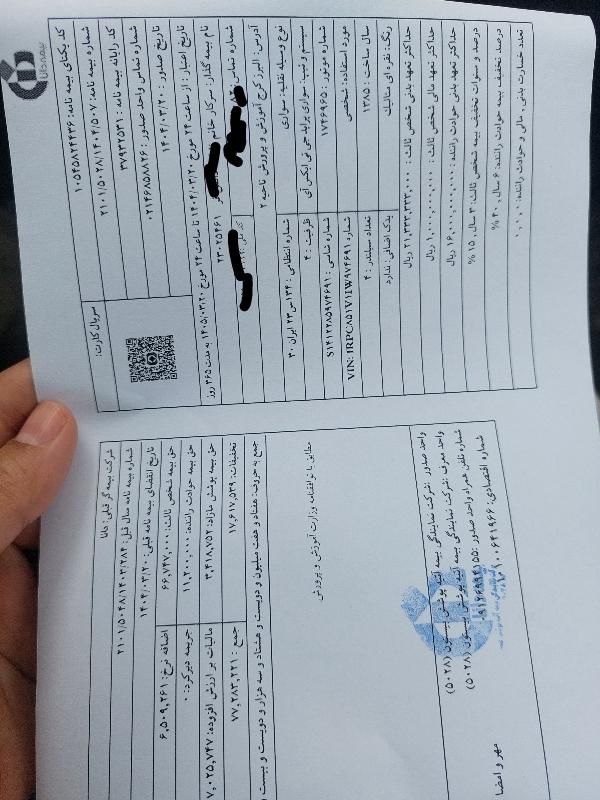 بیمه دانا
کد یکتای بیمه نامه: ۱۰۵۴۵۸۲۴۴۳۶
شماره بیمه نامه: ۲۱۰۱/۵۰۲۸/۱۴۰۴/۵۰۷
کد رایانه بیمه نامه: ۳۷۹۳۲۵۳۱
شماره تماس واحد صدور: ۰۲۱۴۶۸۵۸۸۲۶
تاریخ صدور: ۱۴۰۴/۰۳/۲۰
سریال کارت:
تاریخ اعتبار: از ساعت ۲۴ مورخ ۱۴۰۴/۰۳/۲۰ تا ساعت ۲۴ مورخ ۱۴۰۵/۰۳/۲۰ به مدت ۳۶۵ روز
نام بیمه گذار: سرکار خانم
۲۳۰۲۵۴۶۱
شماره تماس:
کد ملی:
آدرس: البرز کرج آموزش و پرورش ناحیه ۲
نوع وسیله نقلیه: سواری
شماره انتظامی: ۱۳۴س۲۳ ایران ۳۰
سیستم و تیپ: سواری پراید جی تی ایکس ای
ظرفیت: ۴
مورد استفاده: شخصی
شماره شاسی: S۱۴۱۲۲۸۵۹۷۴۶۹۱
شماره موتور: ۱۷۴۶۹۶۵
VIN: IRPC۸۵۱V۱IW۹۷۴۶۹۱ شماره
سال ساخت: ۱۳۸۵
تعداد سیلندر: ۴
رنگ: نقره ای متالیک
یدک اضافی: ندارد
حداکثر تعهد بدنی شخص ثالث: ۲۱,۳۳۳,۳۳۳,۰۰۰ ریال
حداکثر تعهد مالی شخص ثالث: ۱,۰۰۰,۰۰۰,۰۰۰ ریال
حداکثر تعهد بدنی حوادث راننده: ۱۶,۰۰۰,۰۰۰,۰۰۰ ریال
درصد و سنوات تخفیف بیمه شخص ثالث: ۳ سال, ۱۵ %
درصد تخفیف بیمه حوادث راننده: ۶ سال, ۳۰ %
تعداد خسارت بدنی, مالی و حوادث راننده: ۰,۰,۰
شرکت بیمه گر قبلی: دانا
شماره بیمه نامه سال قبل: ۲۱۰۱/۵۰۴۸/۱۴۰۳/۲۸۴
تاریخ انقضای بیمه نامه قبلی: ۱۴۰۴/۰۳/۲۰
حق بیمه شخص ثالث: ۶۶,۷۴۷,۰۰۰
اضافه نرخ: ۶,۵۰۹,۲۶۱
حق بیمه حوادث راننده: ۱۱,۲۰۰,۰۰۰
جریمه دیرکرد: ۰
حق بیمه پوشش مازاد: ۳,۴۱۸,۷۵۲
مالیات بر ارزش افزوده: ۷,۰۲۵,۷۴۷
تخفیفات: ۱۷,۶۱۷,۵۳۹
جمع: ۷۷,۲۸۳,۲۲۱
جمع به حروف: هفتاد و هفت میلیون و دویست و هشتاد و سه هزار و دویست و بیست و
مطابق با توافقنامه وزارت آموزش و پرورش
واحد صدور: شرکت نمایندگی بیمه آتیه پوشش بیستون (۵۰۲۸)
واحد معرف: شرکت نمایندگی بیمه آتیه پوشش بیستون (۵۰۲۸)
شماره تلفن همراه واحد صدور: ۰۹۱۲۶۹۹۴۱۵۵
شماره اقتصادی:
مهر و امضا